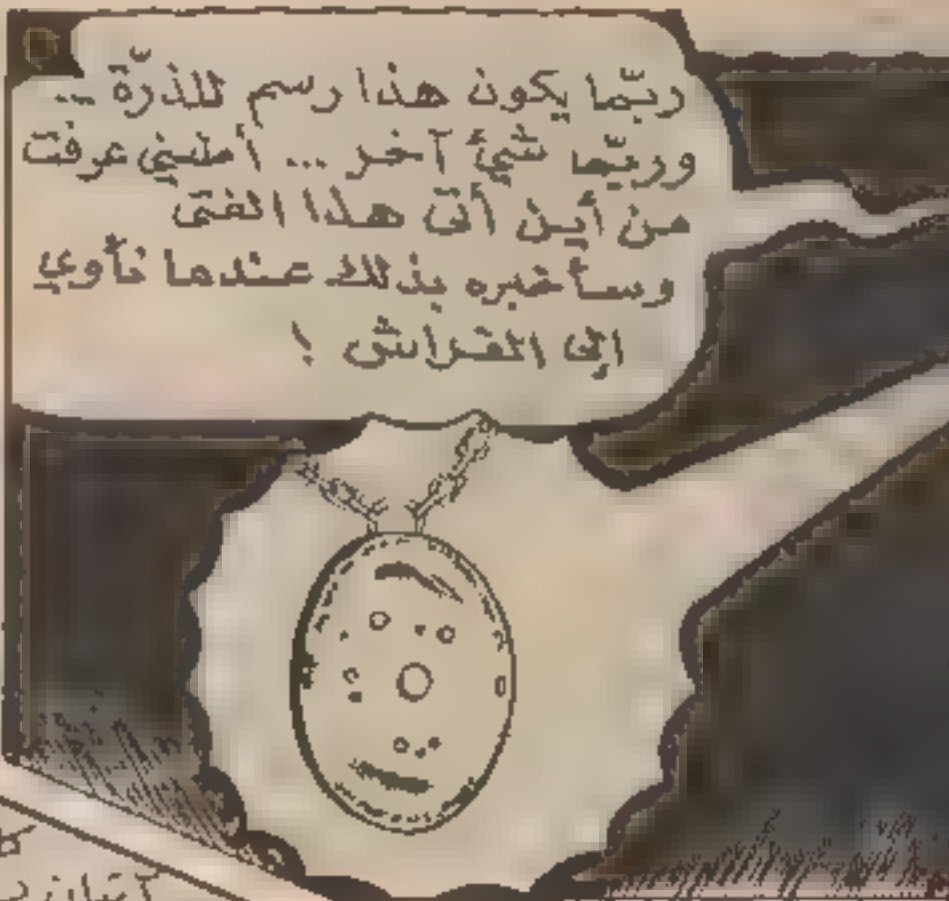 ربّما يكون هذا رسم للذرّة ..
وربّما شيئ آخر ... أظنني عرفت
من أين أتى هذا الفتى
وسأخبره بذلك عندما نأوي
إلى الفراش !